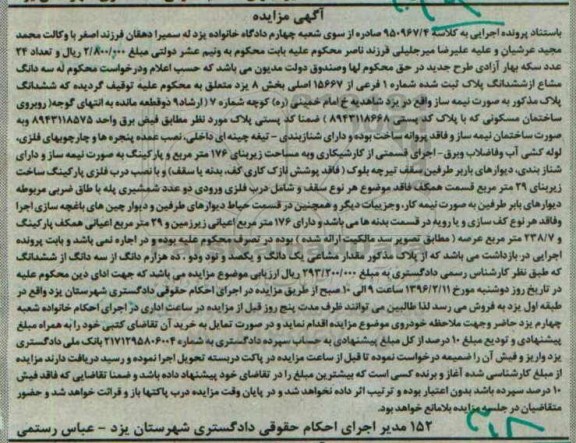 آگهی مزایده
باستناد پرونده اجرایی به کلاسه ۹۵۰۹۶۷/۴ صادره از سوی شعبه چهارم دادگاه خانواده یزد له سمیرا دهقان فرزند اصغر با وکالت محمد
مجید عرشیان و علیه علیرضا میرجلیلی فرزند ناصر محکوم علیه بابت محکوم به ونیم عشر دولتی مبلغ ۲/۸۰۰/۰۰۰ ریال و تعداد ۲۴
عدد سکه بهار آزادی طرح جدید در حق محکوم لها وصندوق دولت مدیون می باشد که حسب اعلام ودرخواست محکوم له سه دانگ
مشاع ازششدانگ پلاک ثبت شده شماره ۱ فرعی از ۱۵۶۶۷ اصلی بخش ۸ یزد متعلق به محکوم علیه توقیف گردیده که ششدانگ
پلاک مذکور به صورت نیمه ساز واقع در یزد شاهدیه خ امام خمینی (ره) کوچه شماره ۷ (ارشاد۹ دوقطعه مانده به انتهای گوجه( روبروی
ساختمان مسکونی که با پلاک کد پستی ۸۹۴۳۱۱۸۶۶۸ ) ضمنا کد پستی پلاک مورد نظر مطابق فیض برق واحد ۸۹۴۳۱۱۸۵۷۵ وبه
صورت ساختمان نیمه ساز و فاقد پروانه ساخت بوده و دارای شنازبندی - تیغه چینه ای داخلی، نصب عمده پنجره ها و چارچوبهای فلزی،
لوله کشی آب وفاضلاب وبرق - اجرای قسمتی از کارشیکاری وبه مساحت زیربنای ۱۷۶ متر مربع و پارکینگ به صورت نیمه ساز و دارای
شناز بندی، دیوارهای باربر طرفین سقف تیرچه بلوک ( فاقد پوشش نازک کاری کف، بدنه یا سقف) و با نصب درب فلزی پارکینگ ساخت
زیربنای ۲۹ متر مربع قسمت همکف فاقد موضوع هر نوع سقف و شامل درب فلزی ورودی دو عدد شمشیری پله با طاق ضربی مربوطه
دیوارهای بابر طرفین به صورت نیمه کار، وجزییات دیگر و همچنین در قسمت حیاط دیوارهای طرفین و دیوار چین های باغچه سازی اجرا
وفاقد هر نوع کف سازی و یا رویه در قسمت بدنه ها می باشد و دارای ۱۷۶ متر مربع اعیانی زیرزمین و ۲۹ متر مربع اعیانی همکف پارکینگ
و ۲۳۸/۷ متر مربع عرصه ( مطابق تصویر سند مالکیت ارائه شده) بوده در تصرف محکوم علیه بوده و در اجاره نمی باشد و بابت پرونده
اجرایی در بازداشت می باشد که از پلاک مذکور مقدار مشاعی یک دانگ و یکصد و نود ودو ، ده هزارم دانگ از سه دانگ از ششدانگ
که طبق نظر کارشناس رسمی دادگستری به مبلغ ۲۹۳/۲۰۰/۰۰۰ ریال ارزیابی موضوع مزایده می باشد که جهت ادای دین محکوم علیه
در تاریخ روز دوشنبه مورخ ۱۳۹۶/۲/۱۱ ساعت ۹ الی ۱۰ صبح از طریق مزایده در اجرای احکام حقوقی دادگستری شهرستان یزد واقع در
طبقه اول یزد به فروش می رسد لذا طالبین می توانند ظرف مدت پنج روز قبل از مزایده در ساعت اداری در اجرای احکام خانواده شعبه
چهارم یزد حاضر وجهت ملاحظه خودروی موضوع مزایده اقدام نماید و در صورت تمایل به خرید آن تقاضای کتبی خود را به همراه مبلغ
پیشنهادی و تودیع مبلغ ۱۰ درصد از کل مبلغ پیشنهادی به حساب سپرده دادگستری به شماره ۲۱۷۱۲۹۵۸۰۶۰۰۴ بانک ملی دادگستری
یزد واریز و فیش آن را ضمیمه درخواست نموده تا قبل از ساعت مزایده در پاکت دربسته تحویل اجرا نموده و رسید دریافت دارند مزایده
از مبلغ کارشناسی شده آغاز و برنده کسی است که بیشترین مبلغ را در تقاضای خود پیشنهاد داده باشد و ضمنا تقاضایی که فاقد فیش
۱۰ درصد سپرده باشد بدون اعتبار بوده و ترتیب اثر داده نخواهد شد و در پایان وقت مزایده درب پاکتها باز و قرائت خواهد شد و حضور
متقاضیان در جلسه مزایده بلامانع خواهد بود.
۱۵۲ مدیر اجرای احکام حقوقی دادگستری شهرستان یزد - عباس رستمی